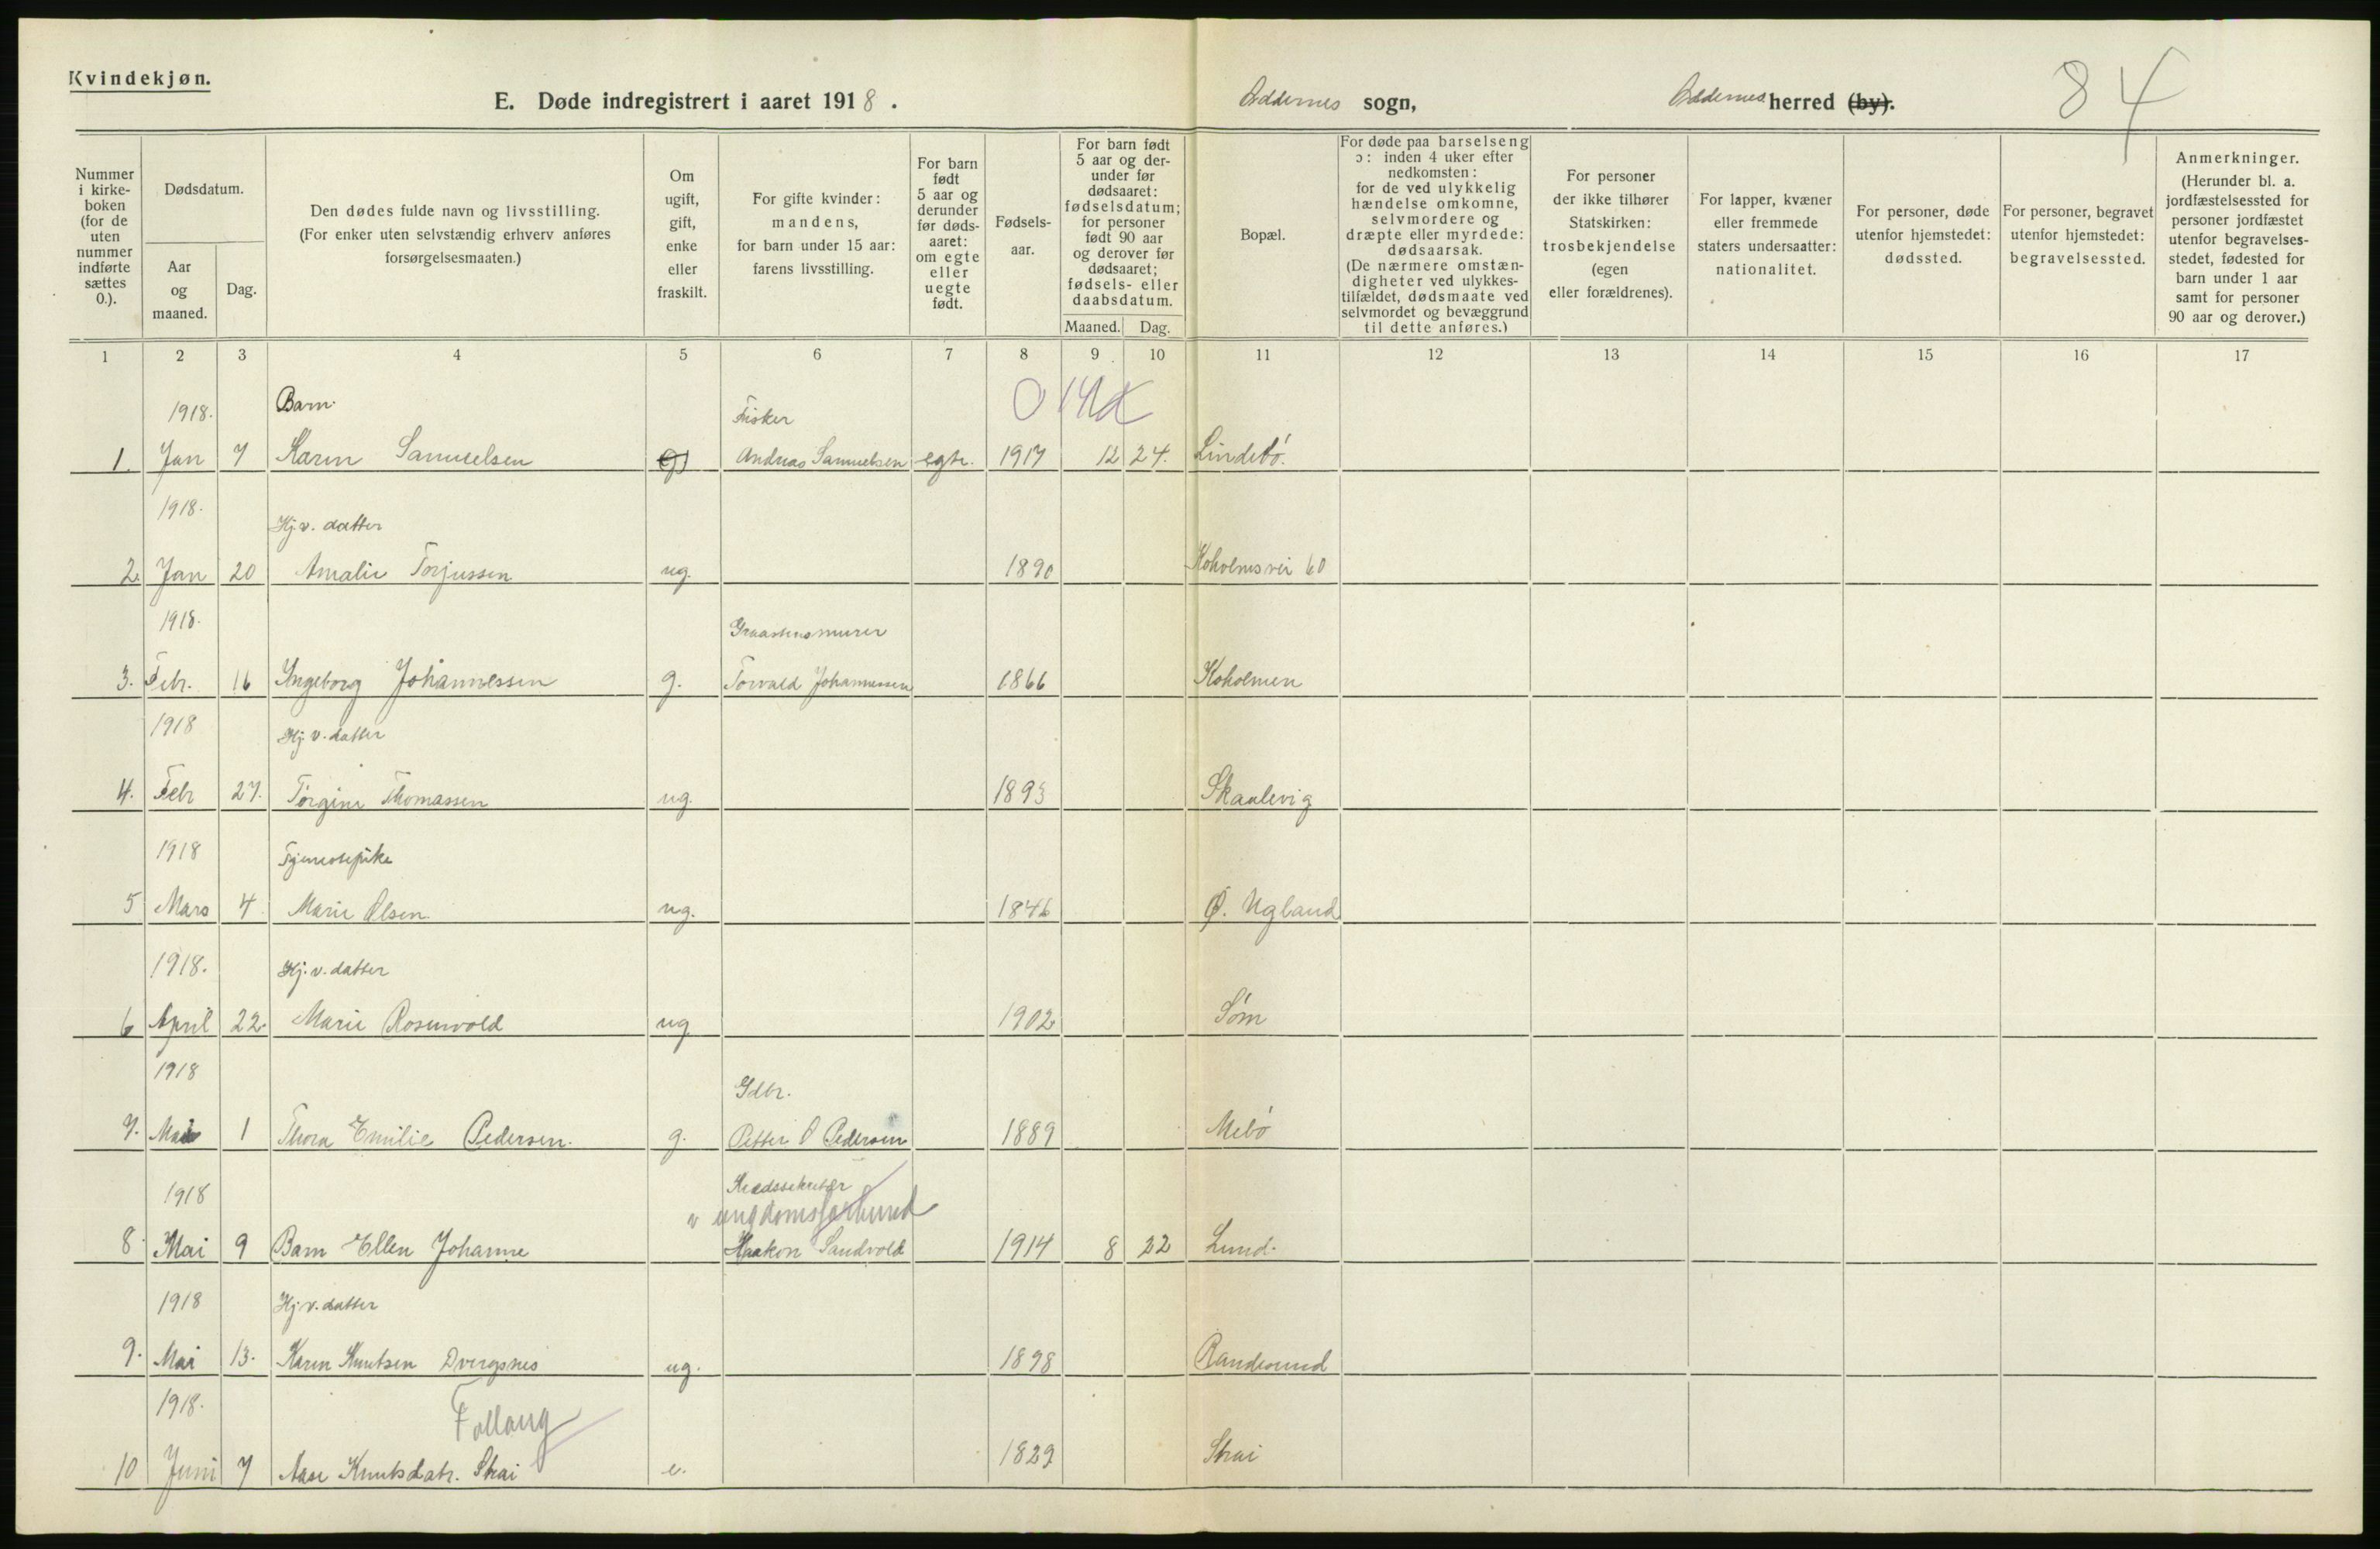 Kvindekjøn.
E. Døde indregistrert i aaret 1918. Oddernes sogn, Oddernes herred (by). 84
Nummer i kirkeboken (for de uten nummer indførte sættes 0.).
Dødsdatum.
Aar og maaned.
Dag.
Den dødes fulde navn og livsstilling. (For enker uten selvstændig erhverv anføres forsørgelsesmaaten.)
Om ugift, gift, enke eller fraskilt.
For gifte kvinder: mandens, for barn under 15 aar: farens livsstilling.
For barn født 5 aar og derunder før dødsaaret: om egte eller uegte født.
Fødselsaar.
For barn født 5 aar og derunder før dødsaaret: fødselsdatum; for personer født 90 aar og derover før dødsaaret; fødsels- eller daabsdatum.
Maaned. Dag.
Bopæl.
For døde paa barselseng ɔ: inden 4 uker efter nedkomsten: for de ved ulykkelig hændelse omkomne, selvmordere og dræpte eller myrdede: dødsaarsak. (De nærmere omstændigheter ved ulykkestilfældet, dødsmaate ved selvmordet og bevæggrund til dette anføres.)
For personer der ikke tilhører Statskirken: trosbekjendelse (egen eller forældrenes).
For lapper, kvæner eller fremmede staters undersaatter: nationalitet.
For personer, døde utenfor hjemstedet: dødssted.
For personer, begravet utenfor hjemstedet: begravelsessted.
Anmerkninger. (Herunder bl. a. jordfæstelsessted for personer jordfæstet utenfor begravelsesstedet, fødested for barn under 1 aar samt for personer 90 aar og derover.)
1 2 3 4 5 6 7 8 9 10 11 12 13 14 15 16 17
1918. Barn. Fisker
1. Jan 7 Karen Samuelsen Andreas Samuelsen egte. 1917 12 24. Lindebö.
1918. Hj. v. datter
2. Jan 20 Amalie Torjussen ug. 1890 Koholmsvei 60
1918. Graastensmurer
3. Febr. 16 Ingeborg Johannessen g. Torvald Johannessen 1866 Koholmen
1918 Hj. v. datter
4. Febr 27. Torgine Thomassen ug. 1893 Skaalevig
1918 Tjenestepike
5 Mars 4 Marie Olsen ug. 1846 Ø. Ugland
1918. Hj. v. datter
6 April 22. Marie Rosenvold ug 1902 Söm
1918 Gdbr.
7. Mai 1 Thora Emilie Pedersen. g. Petter O Pedersen 1889 Mebö
1918 Kredssekretær
v ungdomsforbund
8. Mai 9 Barn Ellen Johanne Haakon Sandvold 1914 8 22 Lund.
1918 Hj. v. datter
9. Mai 13. Karen Knutsen Dvergsnes ug. 1898 Randesund
1918. Follaug
10 Juni 7 Aase Knutsdatr. Strai e. 1829 Strai